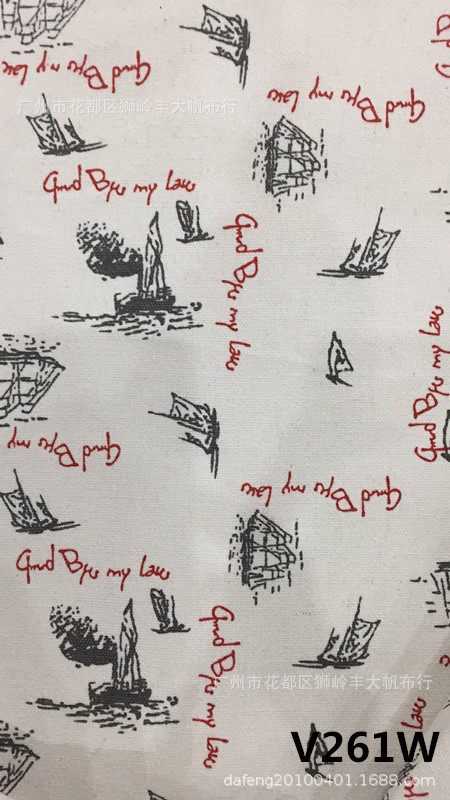 Good Bye my Love
Good Bye my Love
广州市花都区狮岭丰大帆布行
Good Bye my Love
Good Bye my Love
Good Bye my Love
Good Bye my
Good Bye my Love
Good Bye my Love
Good Bye my Love
广州市花都区狮岭丰大帆布行
Love
V261W
dafeng20100401.1688.com